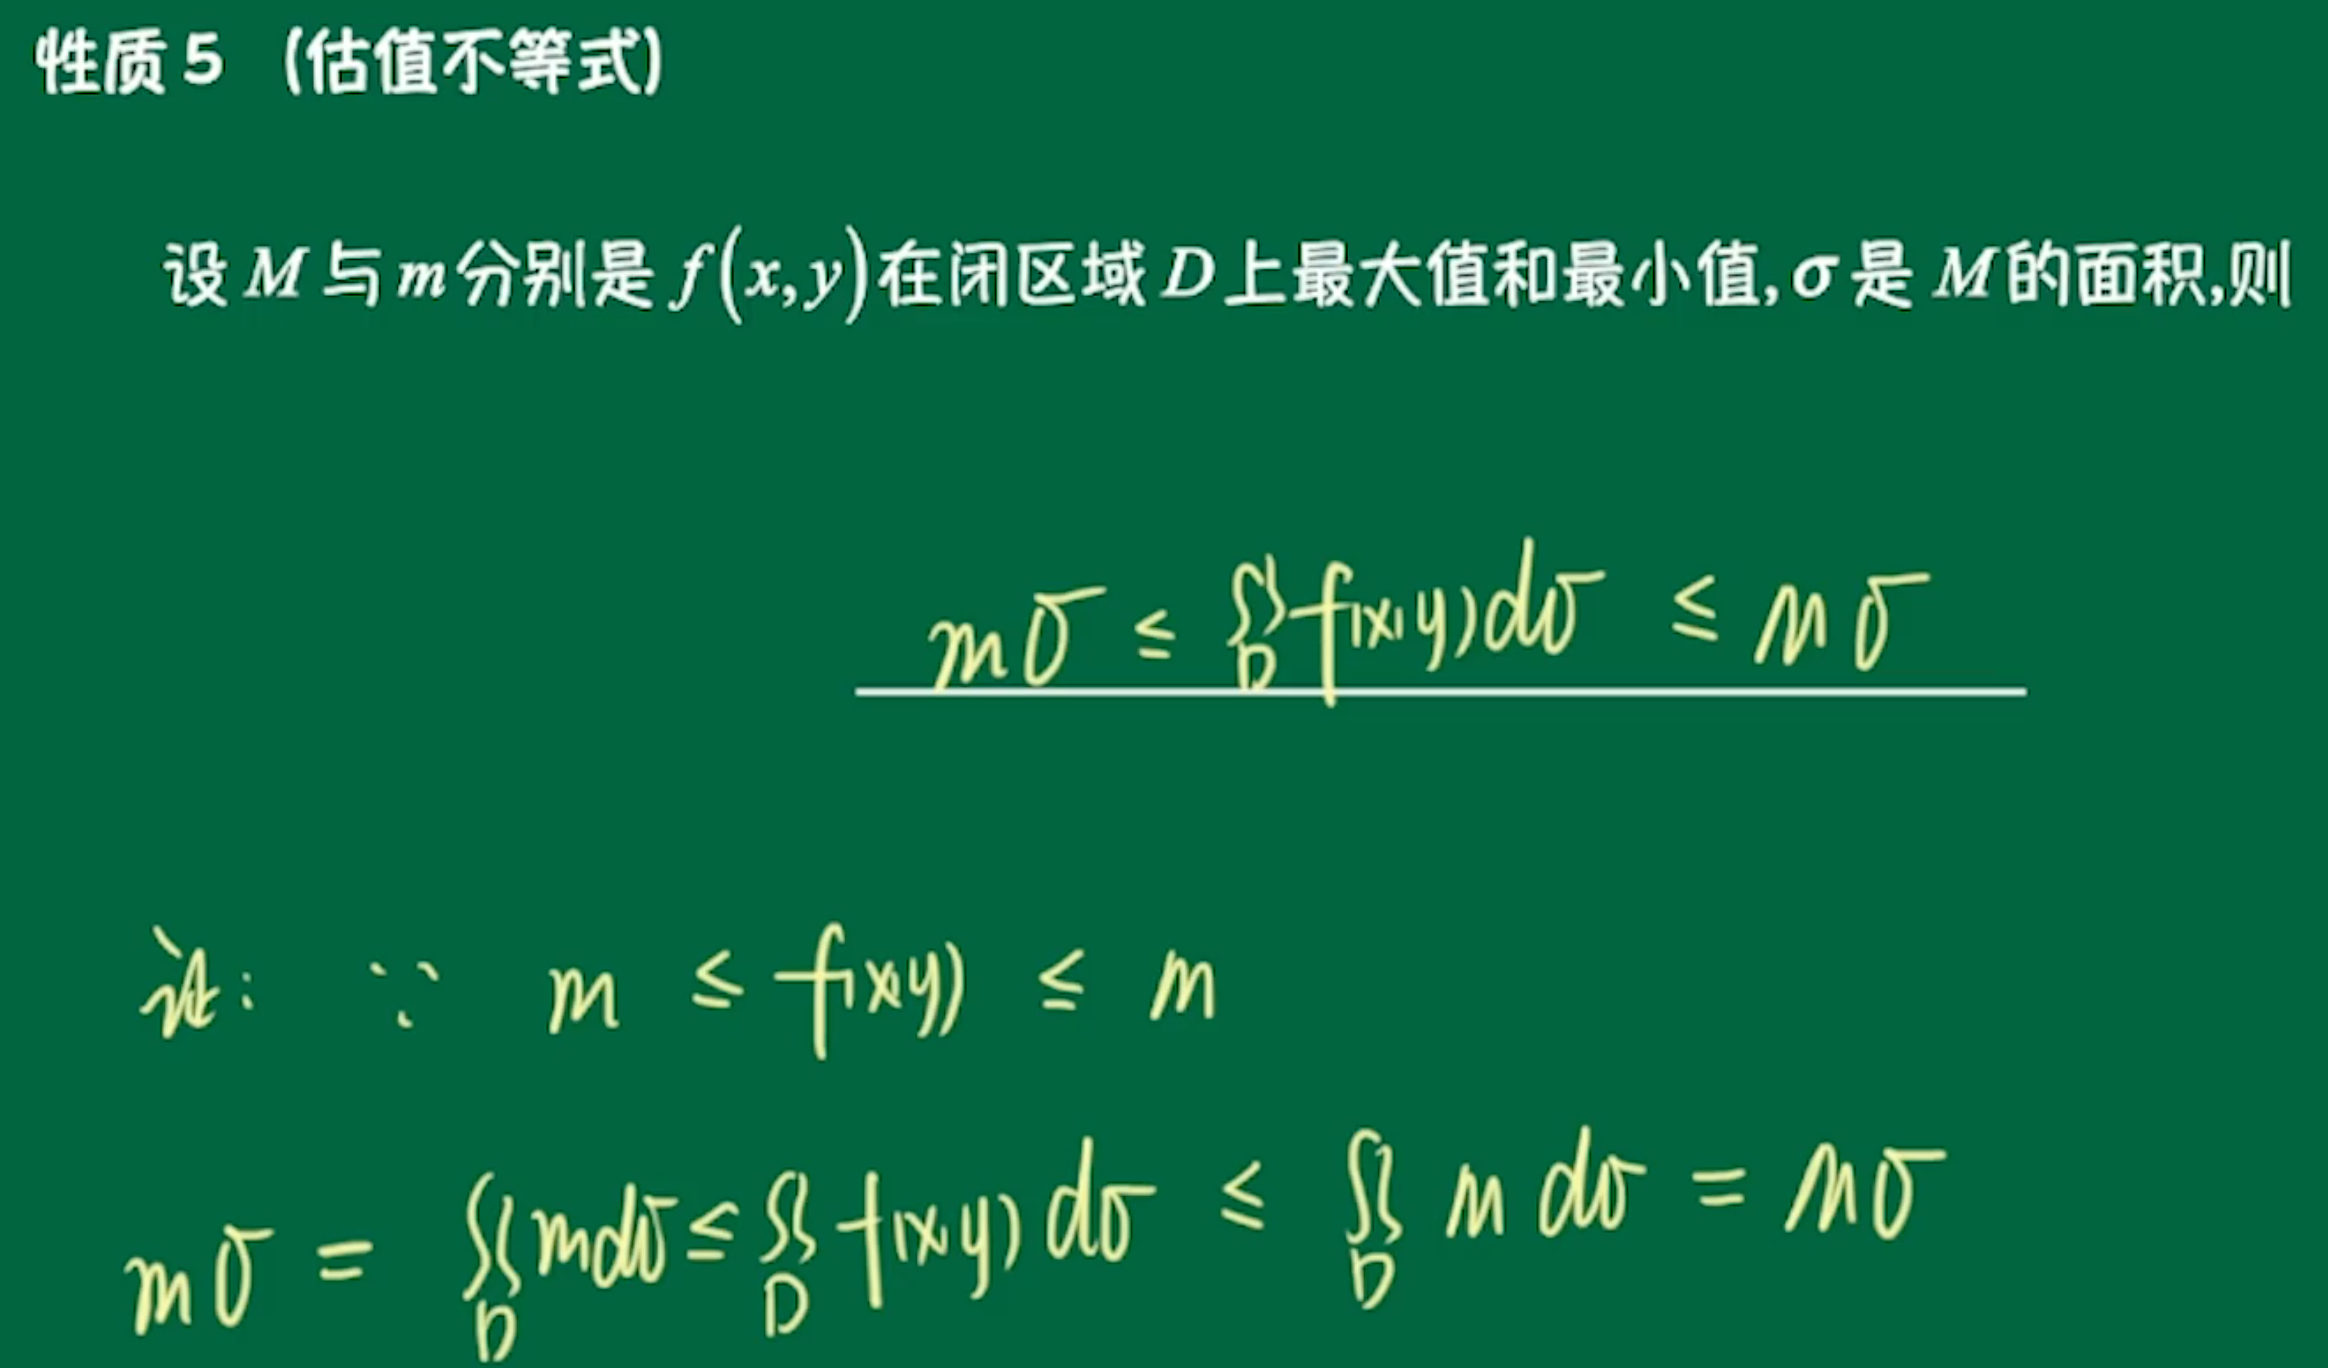 性质5 (估值不等式)
设M与m分别是f(x,y)在闭区域D上最大值和最小值,σ是M的面积,则
mσ ≤ ∬_D f(x,y)dσ ≤ Mσ
证: ∵ m ≤ f(x,y) ≤ M
mσ = ∬_D mdσ ≤ ∬_D f(x,y)dσ ≤ ∬_D M dσ = Mσ